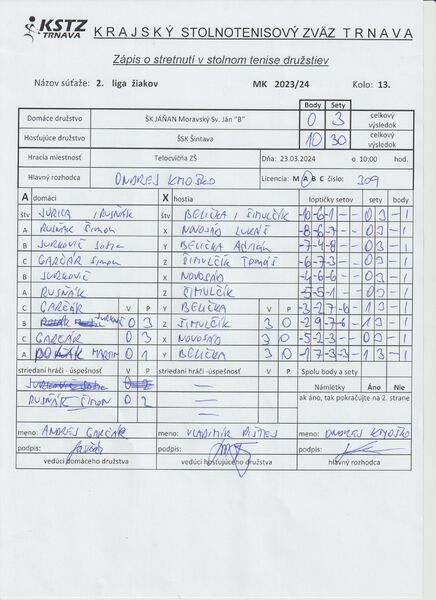 KSTZ TRNAVA KRAJSKÝ STOLNOTENISOVÝ ZVÄZ TRNAVA
Zápis o stretnutí v stolnom tenise družstiev
Názov súťaže: 2. liga žiakov MK 2023/24 Kolo: 13.
Body Sety
Domáce družstvo ŠK JÁŇAN Moravský Sv. Ján "B" 0 3 celkový výsledok
Hosťujúce družstvo ŠSK Šintava 10 30 celkový výsledok
Hracia miestnosť Telocvičňa ZŠ Dňa: 23.03.2024 o 10:00 hod.
Hlavný rozhodca ONDREJ KMOŠKO Licencia: M A B C číslo: 309
A domáci X hostia loptičky setov sety body
štv JURICA / RUSŇÁK štv BELIČKA / ŠIMULČÍK -10 -6 -1 - - 0 3 - 1
A RUSŇÁK ŠIMON X NOVOSAD LUKÁŠ -8 -6 -7 - - 0 3 - 1
B JURKOVIČ Y BELIČKA -7 -4 -8 - - 0 3 - 1
C GARČÁR Šimon Z ŠIMULČÍK TOMÁŠ -6 -7 -3 - - 0 3 - 1
B JURKOVIČ X NOVOSAD -4 -6 -6 - - 0 3 - 1
A RUSŇÁK Z ŠIMULČÍK -5 -5 -1 - - 0 3 - 1
C GARČÁR V P Y BELIČKA V P -3 -2 7 -6 - 1 3 - 1
B JURKOVIČ 0 3 Z ŠIMULČÍK 3 0 -2 9 -7 -6 - 1 3 - 1
C GARČÁR 0 3 X NOVOSAD 3 0 -5 -2 -3 - - 0 3 - 1
A MARTIN 0 1 Y BELIČKA 3 0 -1 7 -3 -3 - 1 3 - 1
striedaní hráči - úspešnosť V P striedaní hráči - úspešnosť V P Spolu body a sety
Námietky Áno Nie
RUSŇÁK ŠIMON 0 2 ak áno, tak pokračujte na 2. strane
meno: ANDREJ GARČÁR meno: VLADIMÍR meno: ONDREJ KMOŠKO
podpis: podpis: podpis:
vedúci domáceho družstva vedúci hosťujúceho družstva hlavný rozhodca